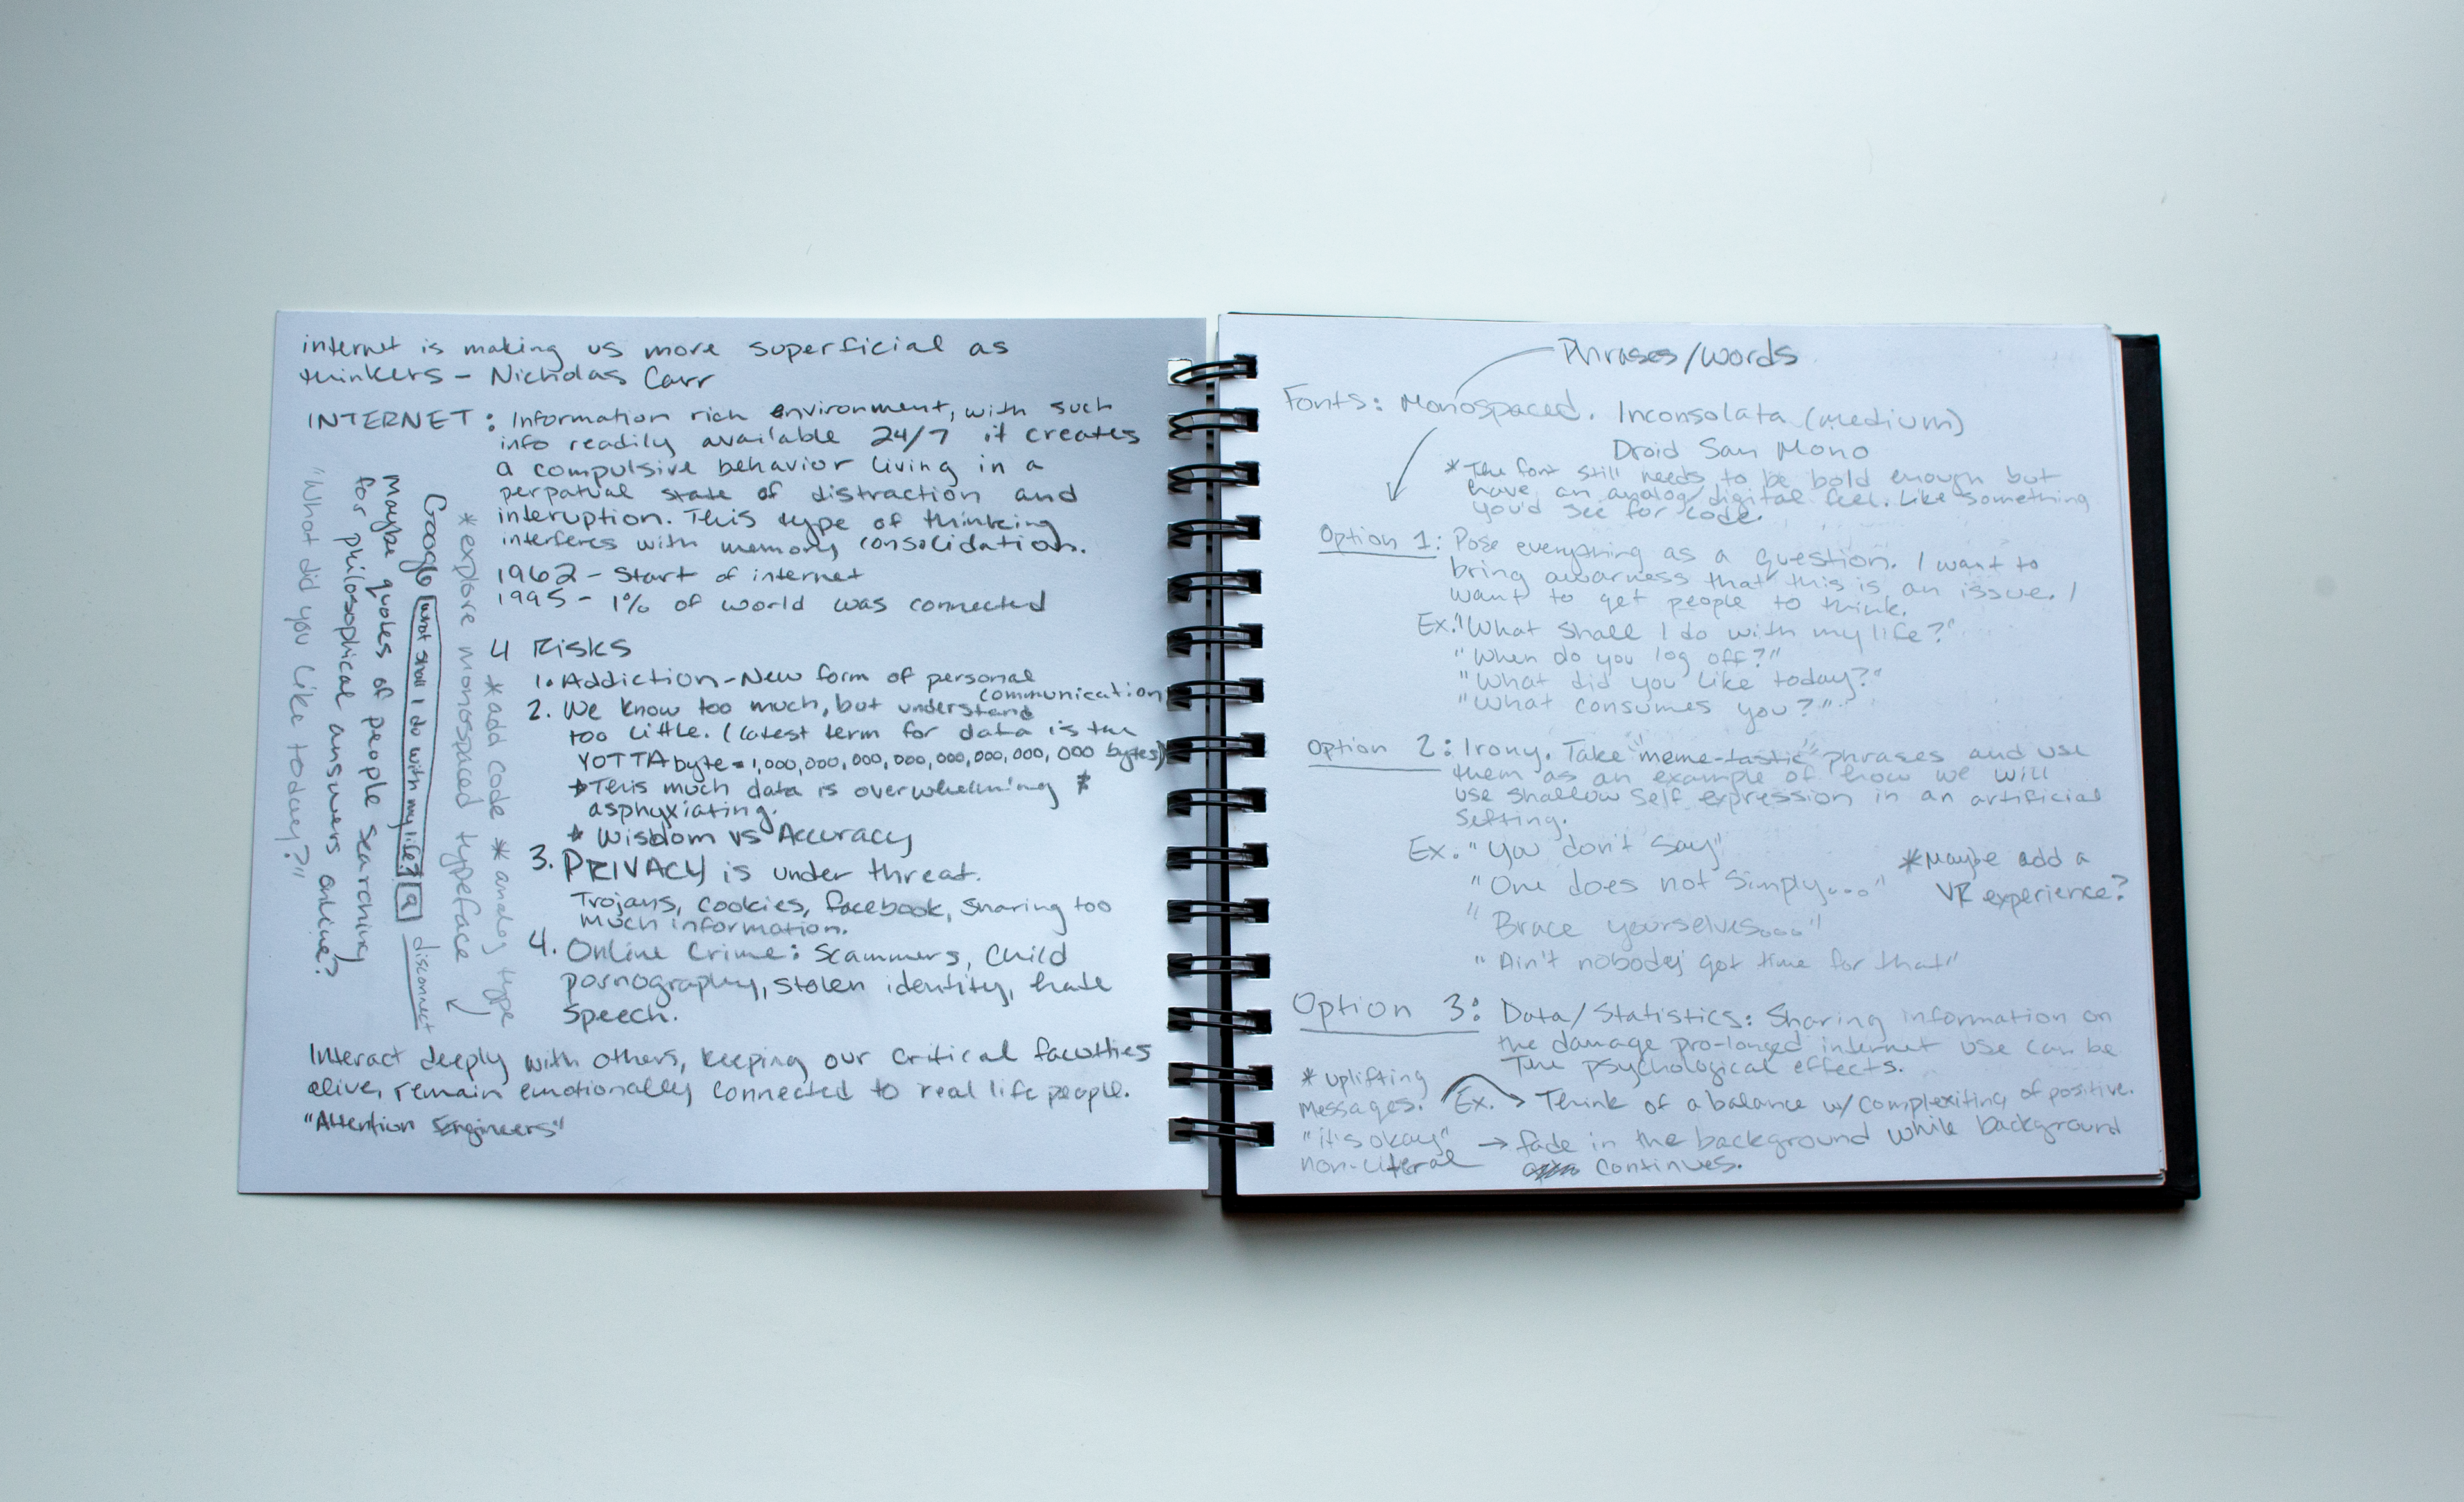 internet is making us more superficial as
thinkers - Nicholas Carr
INTERNET: Information rich environment, with such
info readily available 24/7 it creates
a compulsive behavior living in a
perpatual state of distraction and
interuption. This type of thinking
interferes with memory consolidation.
1962 - Start of internet
1995 - 1% of world was connected
4 Risks
1. Addiction - New form of personal
communication
2. We know too much, but understand
too little. (latest term for data is the
YOTTA byte = 1,000,000,000,000,000,000,000,000 bytes)
*This much data is overwhelming *
asphyxiating.
* Wisdom vs Accuracy
3. PRIVACY is under threat.
Trojans, cookies, facebook, sharing too
much information.
4. Online Crime: Scammers, Child
pornography, stolen identity, hate
speech.
Interact deeply with others, keeping our critical faculties
alive, remain emotionally connected to real life people.
"Attention Engineers"
* add code * analog type
* explore monospaced typeface
Google what shall I do with my life? Q disconnect
Maybe quotes of people searching
for philosophical answers online?
"What did you like today?"
Phrases/words
Fonts: Monospaced. Inconsolata (medium)
Droid San Mono
* The font still needs to be bold enough but
have an analog/digital feel. Like something
you'd see for code.
Option 1: Pose everything as a question. I want to
bring awarness that this is an issue. I
want to get people to think.
Ex. "What shall I do with my life?"
"When do you log off?"
"What did you like today?"
"What consumes you?"
Option 2: Irony. Take "meme-tastic" phrases and use
them as an example of how we will
use shallow self expression in an artificial
setting.
Ex. "You don't say"
"One does not simply..."
"Brace yourselves...."
"Ain't nobody got time for that"
*Maybe add a
VR experience?
Option 3: Data/Statistics: Sharing information on
the damage pro-longed internet use can be
The psychological effects.
* uplifting
messages.
"it's okay"
non-literal
Ex. → Think of a balance w/ complexiting of positive.
→ fade in the background while background
continues.